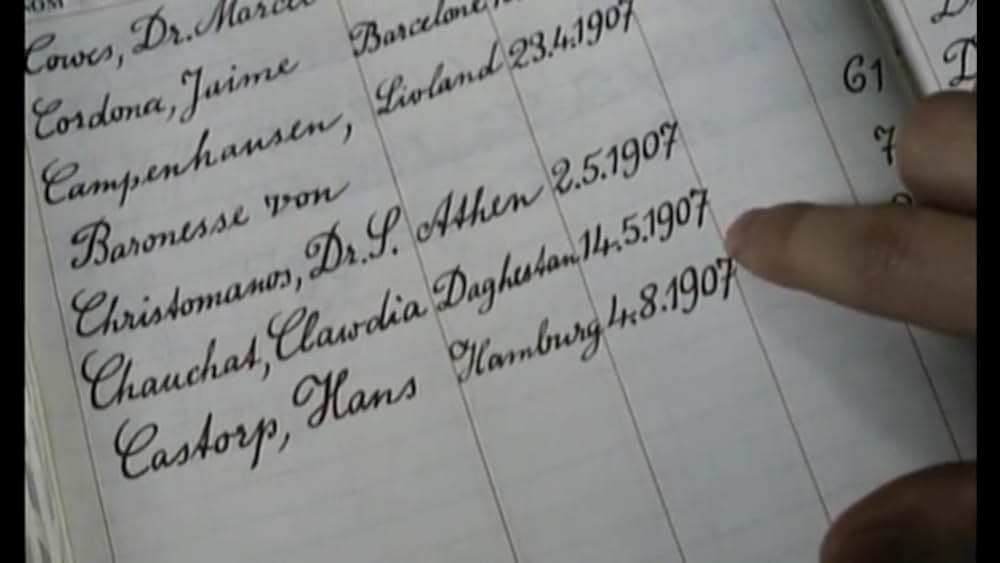 Cowes, Dr. Marcel
Cordona, Jaime Barcelone
Campenhausen, Livland 23.4.1907
Baronesse von
Christomanos, Dr. S. Athen 2.5.1907 61
Chauchat, Clawdia Daghestan 14.5.1907 7
Castorp, Hans Hamburg 4.8.1907